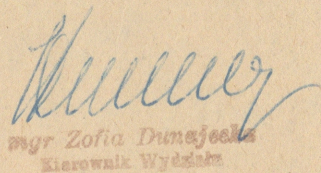 mgr Zofia Dunajecka
Kierownik Wydziału